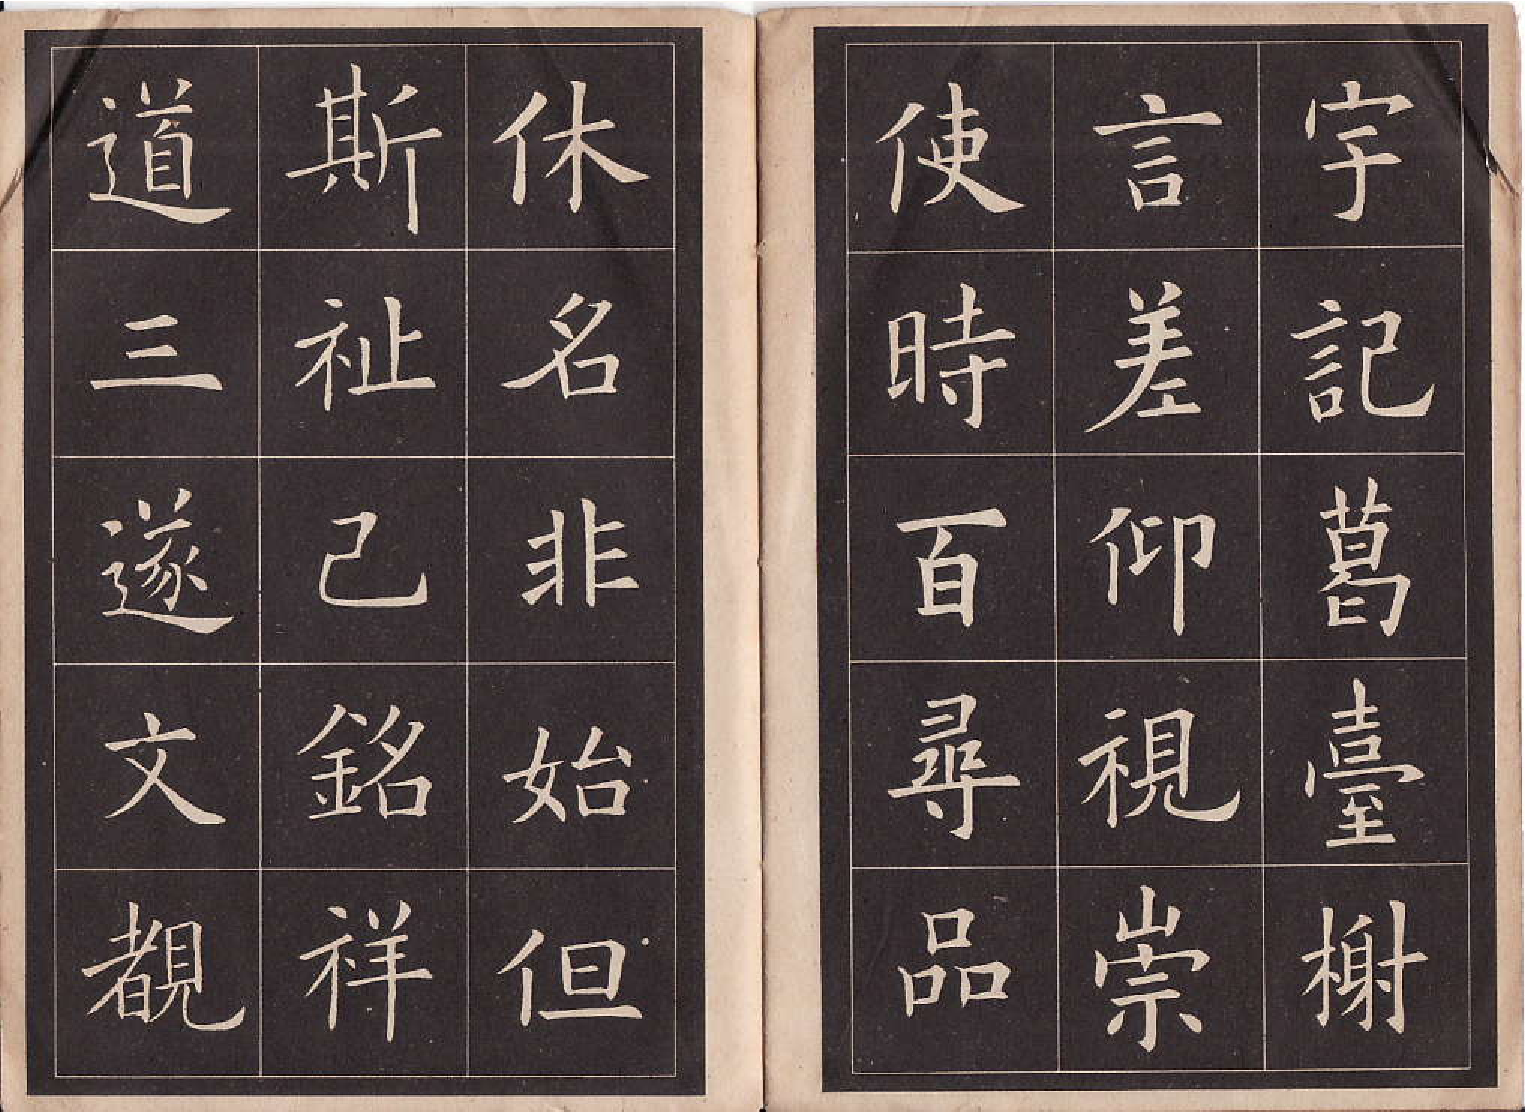 字記葛臺榭
言差仰視崇
使時百尋品
休名非始但
斯祉己銘祥
道三遂文覩